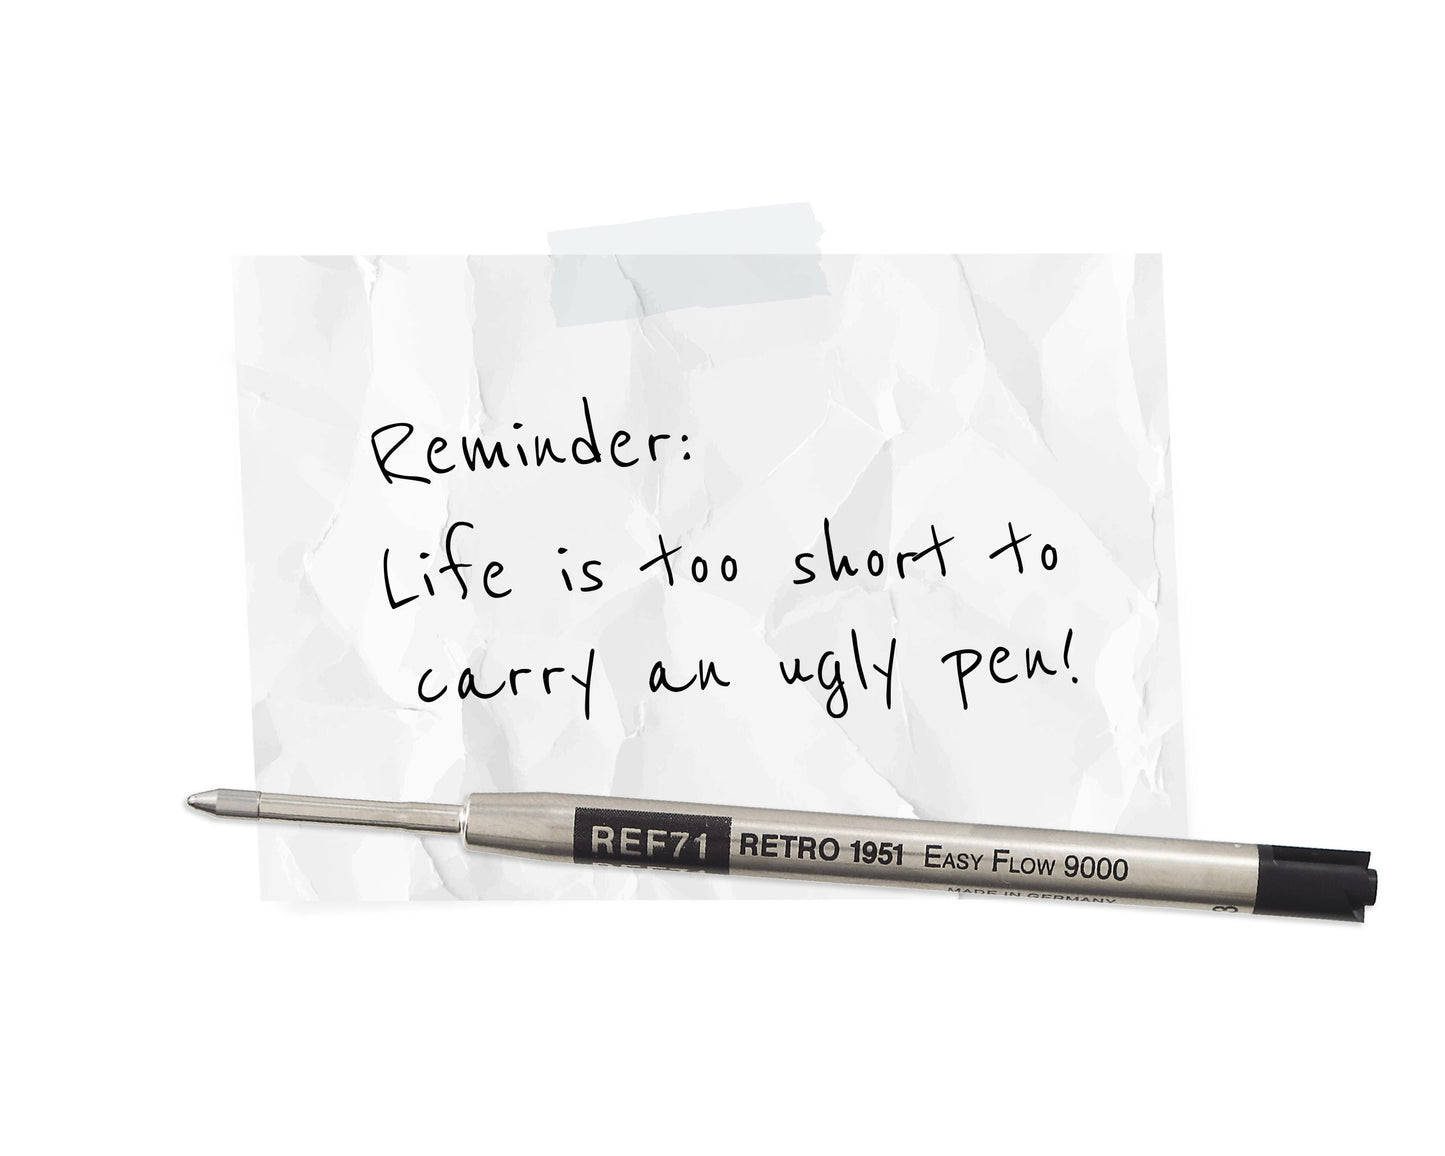 Reminder:
Life is too short to
carry an ugly pen!
REF71 RETRO 1951 EASY FLOW 9000
MADE IN GERMANY